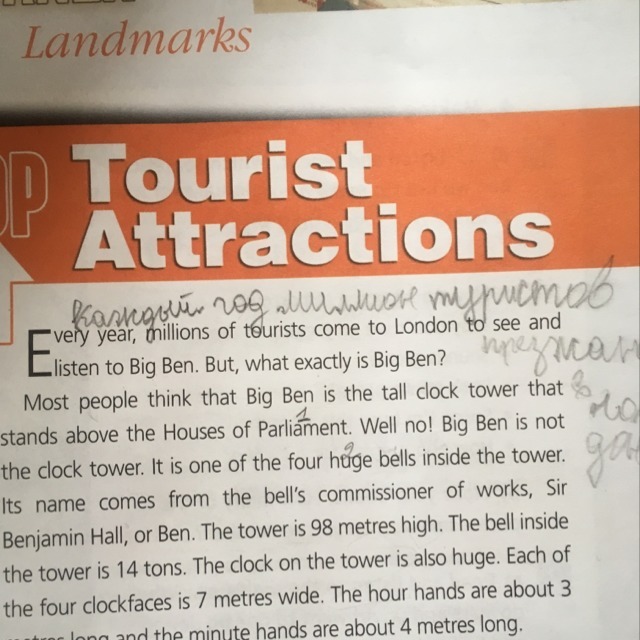 Landmarks
OP
Tourist
Attractions
Каждый год миллион туристов
Every year, millions of tourists come to London to see and
listen to Big Ben. But, what exactly is Big Ben?
Most people think that Big Ben is the tall clock tower that
1
stands above the Houses of Parliament. Well no! Big Ben is not
2
the clock tower. It is one of the four huge bells inside the tower.
Its name comes from the bell's commissioner of works, Sir
Benjamin Hall, or Ben. The tower is 98 metres high. The bell inside
the tower is 14 tons. The clock on the tower is also huge. Each of
the four clockfaces is 7 metres wide. The hour hands are about 3
metres long and the minute hands are about 4 metres long.